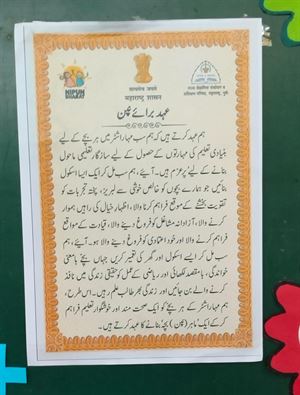 NIPUN
BHARAT
सत्यमेव जयते
महाराष्ट्र शासन
عہد برائے نپن
ہم عہد کرتے ہیں کہ ہم سب مہاراشٹر میں ہر بچے کے لیے
بنیادی تعلیم کی مہارتوں کے حصول کے لیے سازگار تعلیمی ماحول
بنانے کے لیے پُرعزم ہیں۔ آیئے، ہم سب مل کر ایک ایسا اسکول
بنائیں جو ہمارے بچوں کو خالص خوشی سے لبریز، پختہ تجربات کو
تقویت بخشنے کے مواقع فراہم کرنے والا، اظہارِ خیال کی راہیں ہموار
کرنے والا، آزادانہ مشاغل کو فروغ دینے والا، قیادت کے مواقع
فراہم کرنے والا اور خود اعتمادی کو فروغ دینے والا ہو۔ آیئے، ہم
سب مل کر ایسے اسکول اور گھر کی تعمیر کریں جہاں بچے بامعنی
خواندگی، بامقصد لکھائی اور ریاضی کے عمل کو حقیقی زندگی میں نافذ
کرنے والے بن جائیں اور زندگی بھر طالبِ علم رہیں۔ اس طرح،
ہم مہاراشٹر کے ہر بچے کو ایک صحت مند اور خوشگوار تعلیم فراہم
کر کے ایک 'ماہر (نپن) بچہ' بنانے کا عہد کرتے ہیں۔